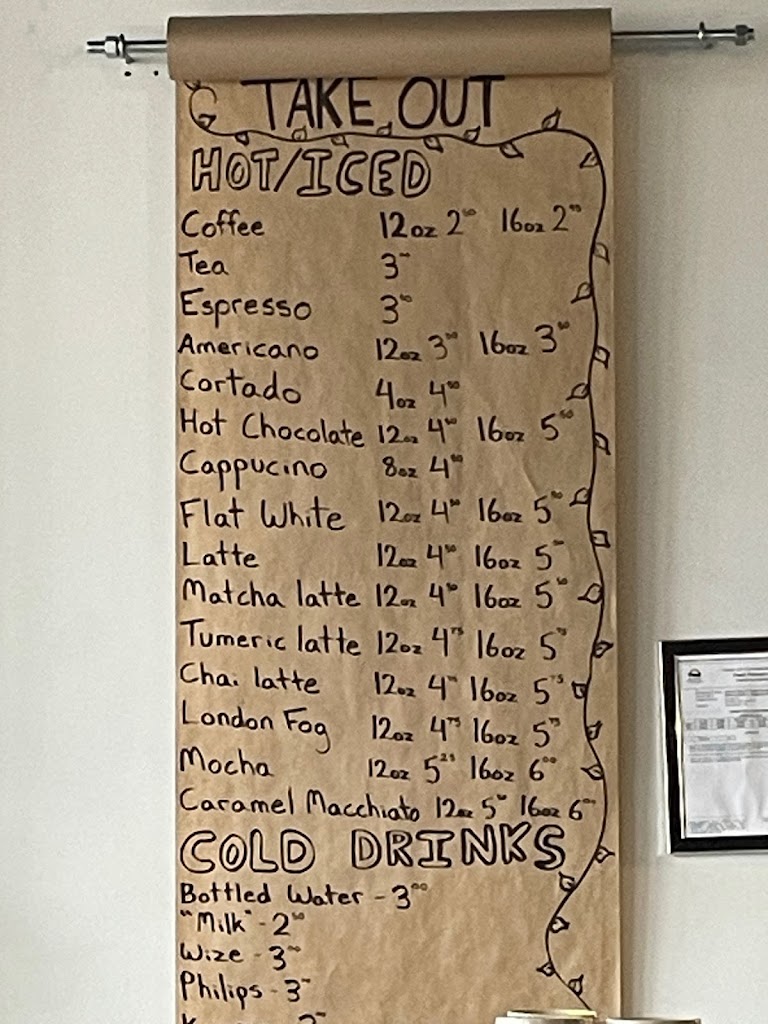 TAKE OUT
HOT/ICED
Coffee 12oz 2 16oz 2
Tea 3
Espresso 3
Americano 12oz 3 16oz 3
Cortado 4oz 4
Hot Chocolate 12oz 4 16oz 5
Cappucino 8oz 4
Flat White 12oz 4 16oz 5
Latte 12oz 4 16oz 5
Matcha latte 12oz 4 16oz 5
Tumeric latte 12oz 4⁷⁵ 16oz 5⁷⁵
Chai latte 12oz 4 16oz 5⁷⁵
London Fog 12oz 4⁷⁵ 16oz 5⁷⁵
Mocha 12oz 5²⁵ 16oz 6⁰⁰
Caramel Macchiato 12oz 5 16oz 6
COLD DRINKS
Bottled Water - 3⁰⁰
"Milk" - 2⁵⁰
Wize - 3
Philips - 3